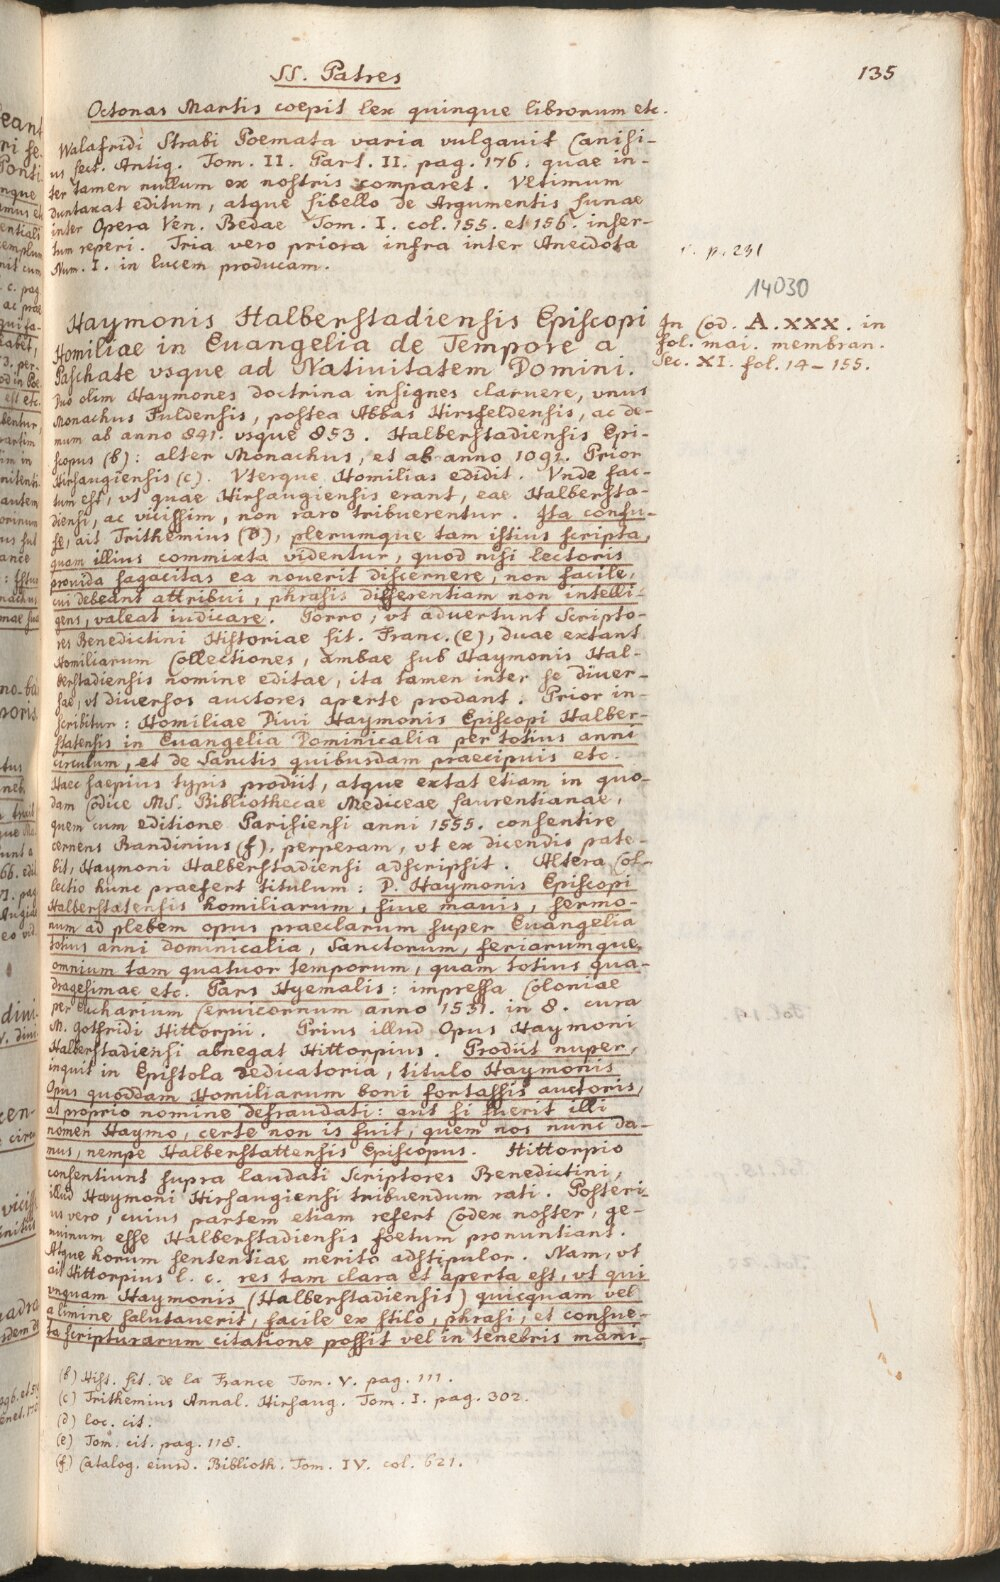 SS. Patres
135
Octonas Martis coepit lex quinque librorum etc.
Walafridi Strabi Poemata varia vulgavit Canisi-
us Lect. Antiq. Tom. II. Part. II. pag. 176. quae in-
ter tamen nullum ex nostris comparet. Vltimum
duntaxat editum, atque Libello de Argumentis Lunae
inter Opera Ven. Bedae Tom. I. col. 155. et 156. inser-
tum reperi. Tria vero priora infra inter Anecdota
Num. I. in lucem producam.
p. 231
14030
Haymonis Halberstadiensis Episcopi
Homiliae in Euangelia de Tempore a
Paschate vsque ad Nativitatem Domini.
In Cod. A.XXX. in
fol. mai. membran.
Sec. XI. fol. 14-155.
Duo olim Haymones doctrina insignes claruere, vnus
Monachus Fuldensis, postea Abbas Hirsfeldensis, ac de-
mum ab anno 841. vsque 853. Halberstadiensis Epi-
scopus (b): alter Monachus, et ab anno 1091. Prior
Hirsaugiensis (c). Vterque Homilias edidit. Vnde fac-
tum est, vt quae Hirsaugiensis erant, eae Halbersta-
diensi, ac vicissim, non raro tribuerentur. Ita confu-
se, ait Trithemius (d), plerumque tam istius scripta,
quam illius commixta videntur, quod nisi lectoris
provida sagacitas ea noverit discernere, non facile,
cui debeant attribui, phrasis differentiam non intelli-
gens, valeat iudicare. Porro, vt advertunt Scripto-
res Benedictini Historiae lit. Franc. (e), duae extant
Homiliarum Collectiones, ambae sub Haymonis Hal-
berstadiensis nomine editae, ita tamen inter se diver-
sae, vt diversos auctores aperte prodant. Prior in-
scribitur: Homiliae Divi Haymonis Episcopi Halber-
statensis in Euangelia Dominicalia per totius anni
circulum, et de Sanctis quibusdam praecipuis etc.
Haec saepius typis prodiit, atque extat etiam in quo-
dam Codice MS. Bibliothecae Mediceae Laurentianae,
quem cum editione Parisiensi anni 1555. consentire
cernens Bandinius (f), perperam, vt ex dicendis pate-
bit, Haymoni Halberstadiensi adscripsit. Altera Col-
lectio hunc praefert titulum: D. Haymonis Episcopi
Halberstatensis homiliarum, sive mavis, sermo-
num ad plebem opus praeclarum super Euangelia
totius anni dominicalia, Sanctorum, feriarumque
omnium tam quatuor temporum, quam totius qua-
dragesimae etc. Pars Hyemalis: impressa Coloniae
per Eucharium Cervicornum anno 1531. in 8. cura
M. Gotfridi Hittorpii. Prius illud Opus Haymoni
Halberstadiensi abnegat Hittorpius. Prodiit nuper,
inquit in Epistola dedicatoria, titulo Haymonis
Opus quoddam Homiliarum boni fortassis auctoris,
at proprio nomine defraudati: aut si fuerit illi
nomen Haymo, certe non is fuit, quem nos nunc da-
mus, nempe Halberstattensis Episcopus. Hittorpio
consentiunt supra laudati Scriptores Benedictini,
illud Haymoni Hirsaugiensi tribuendum rati. Posteri-
us vero, cuius partem etiam refert Codex noster, ge-
nuinum esse Halberstadiensis foetum pronuntiant.
Atque horum sententiae merito adstipulor. Nam, vt
ait Hittorpius l. c. res tam clara et aperta est, vt qui
vnquam Haymonis (Halberstadiensis) quicquam vel
a limine salutaverit, facile ex stilo, phrasi, et consue-
ta scripturarum citatione possit vel in tenebris mani-
(b) Hist. Lit. de la France Tom. V. pag. 111.
(c) Trithemius Annal. Hirsaug. Tom. I. pag. 302.
(d) loc. cit.
(e) Tom. cit. pag. 118.
(f) Catalog. eiusd. Biblioth. Tom. IV. col. 621.